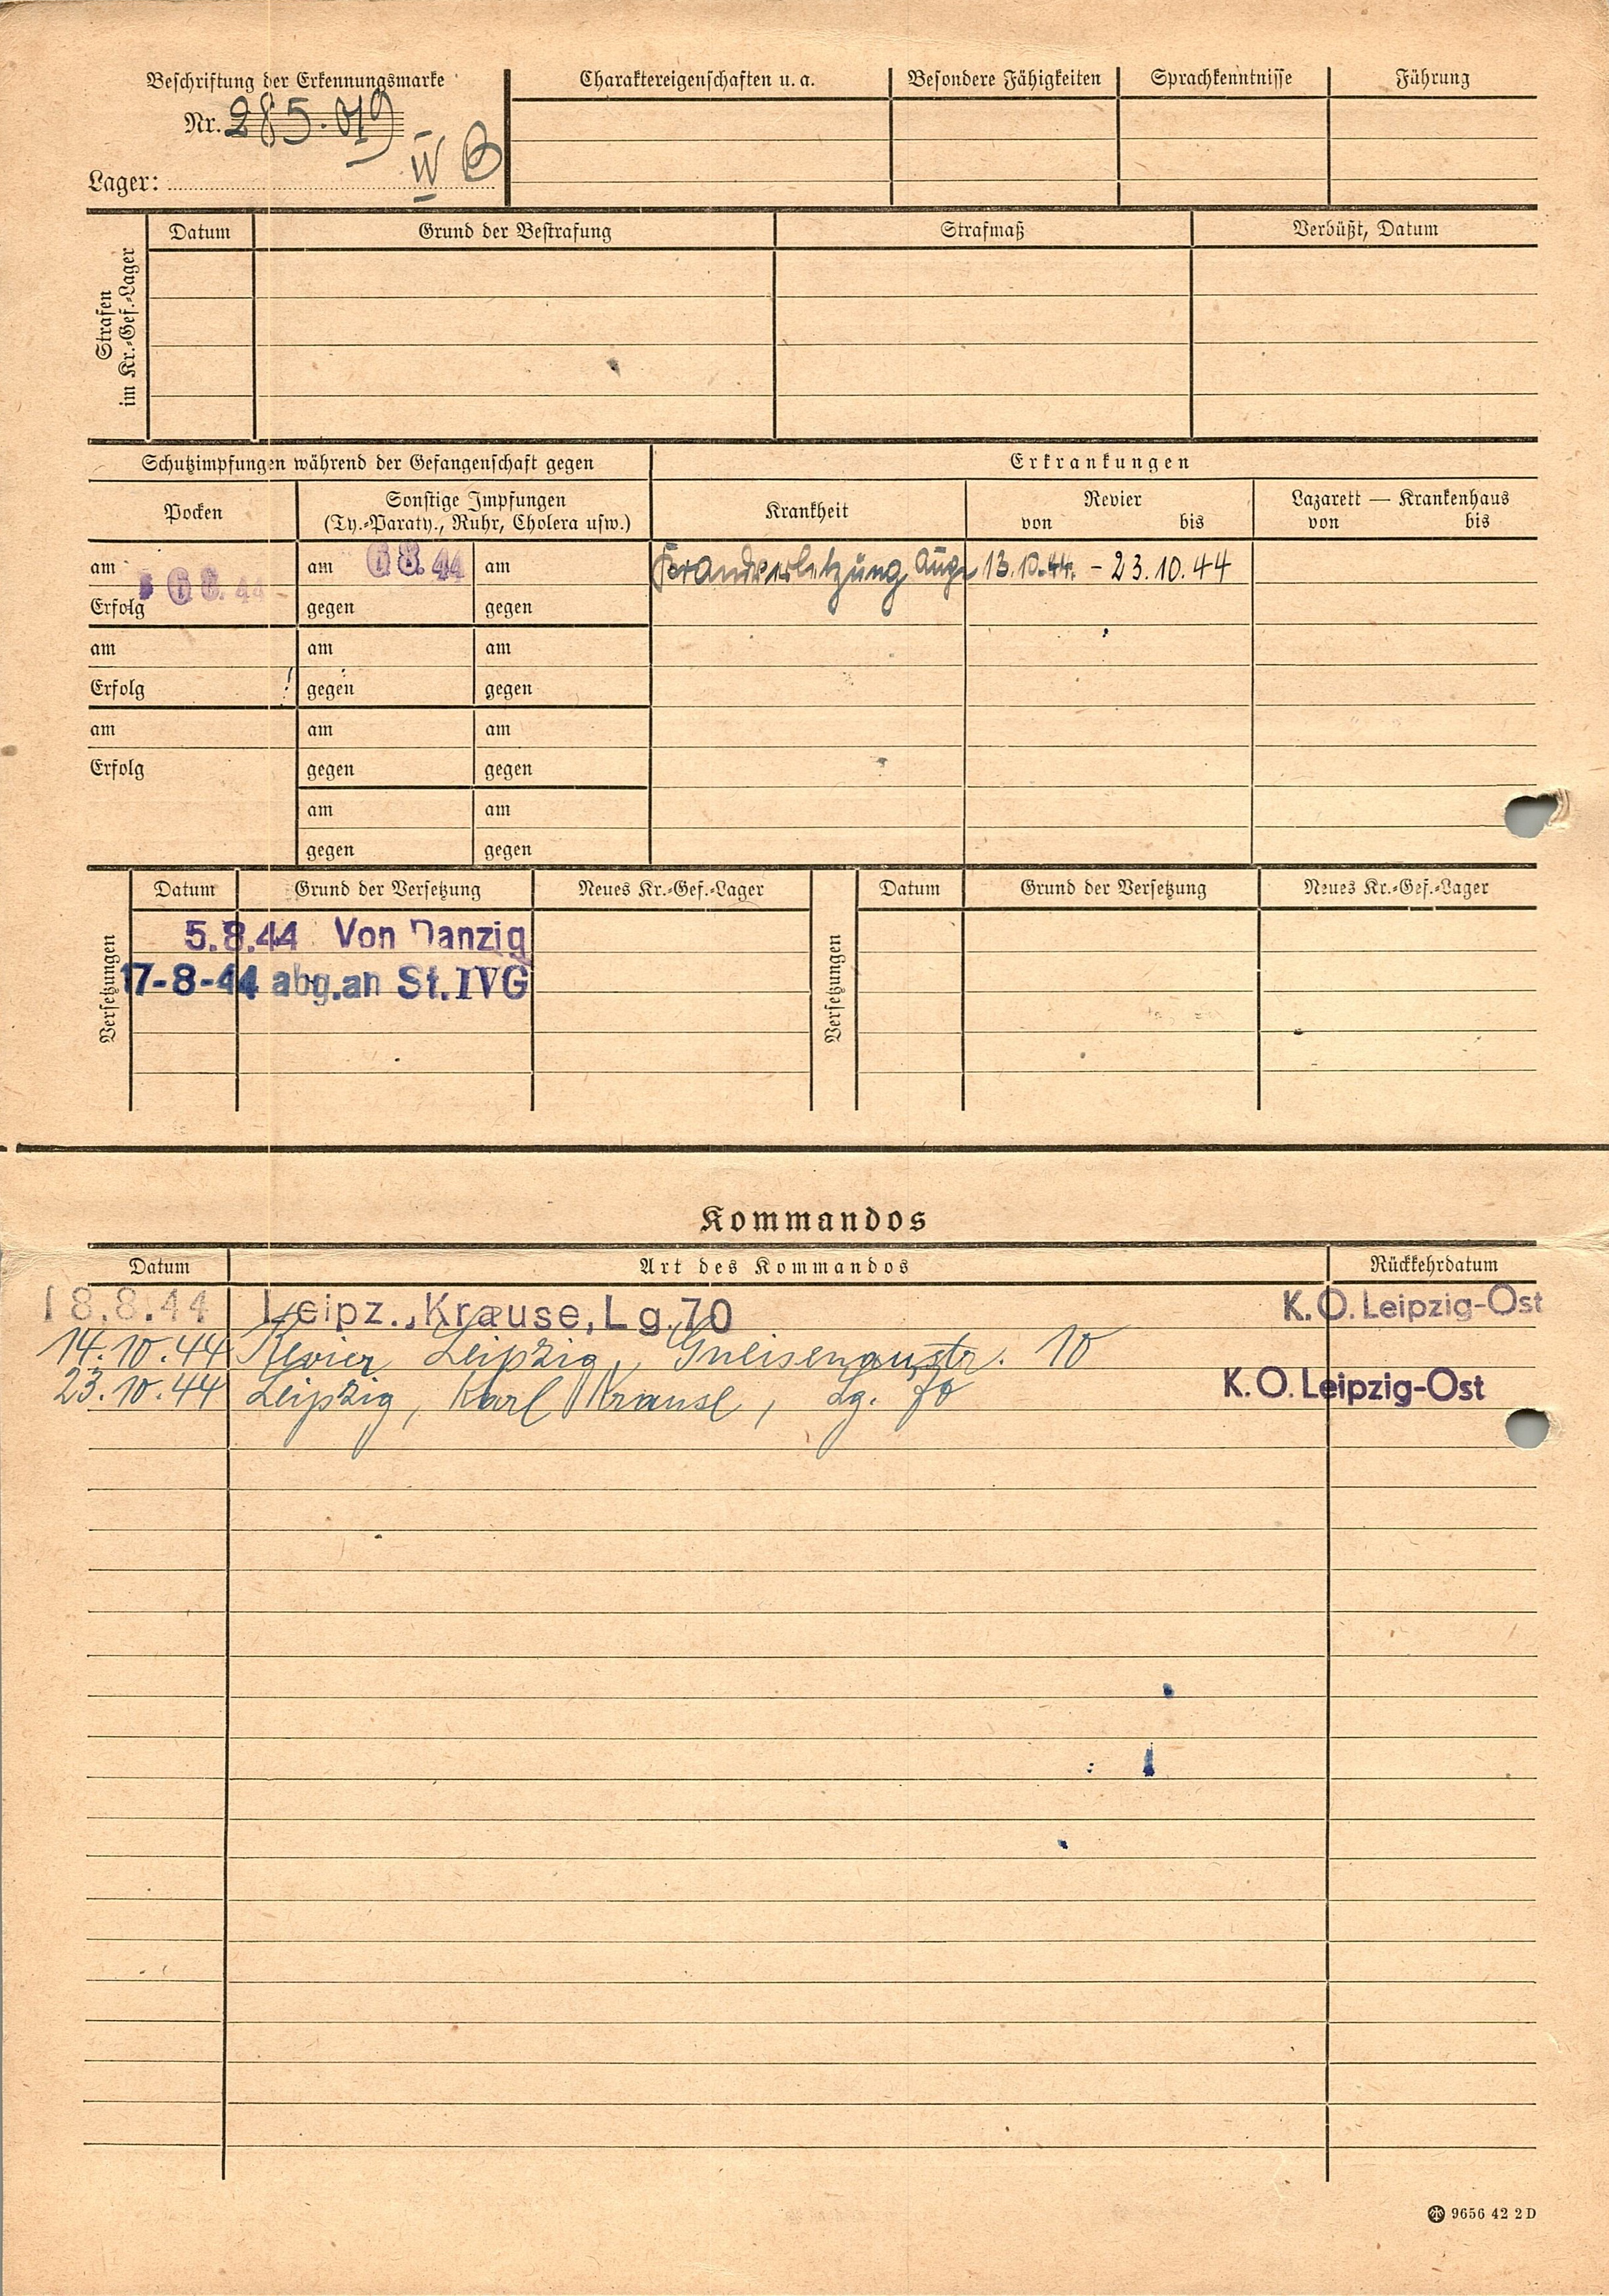 Beschriftung der Erkennungsmarke
Nr. 285.019
Lager: IV B
Charaktereigenschaften u. a.
Besondere Fähigkeiten
Sprachkenntnisse
Führung
Strafen im Kr.-Gef.-Lager
Datum
Grund der Bestrafung
Strafmaß
Verbüßt, Datum
Schutzimpfungen während der Gefangenschaft gegen
Erkrankungen
Pocken
Sonstige Impfungen
(Ty.-Paraty., Ruhr, Cholera usw.)
Krankheit
Revier
von bis
Lazarett — Krankenhaus
von bis
am 6 8. 44 am 6 8. 44 am
Brandverletzung Auge 13.10.44. - 23.10.44
Erfolg gegen gegen
am am am
Erfolg gegen gegen
am am am
Erfolg gegen gegen
am am
gegen gegen
Versetzungen
Datum Grund der Versetzung Neues Kr.-Gef.-Lager
5.8.44 Von Danzig
17-8-44 abg.an St. IVG
Versetzungen
Datum Grund der Versetzung Neues Kr.-Gef.-Lager
Kommandos
Datum Art des Kommandos Rückkehrdatum
18.8.44 Leipz., Krause, Lg. 70 K.O. Leipzig-Ost
14.10.44 Revier Leipzig, Gneisenaustr. 10
23.10.44 Leipzig, Karl Krause, Lg. 70 K.O. Leipzig-Ost
9656 42 2 D